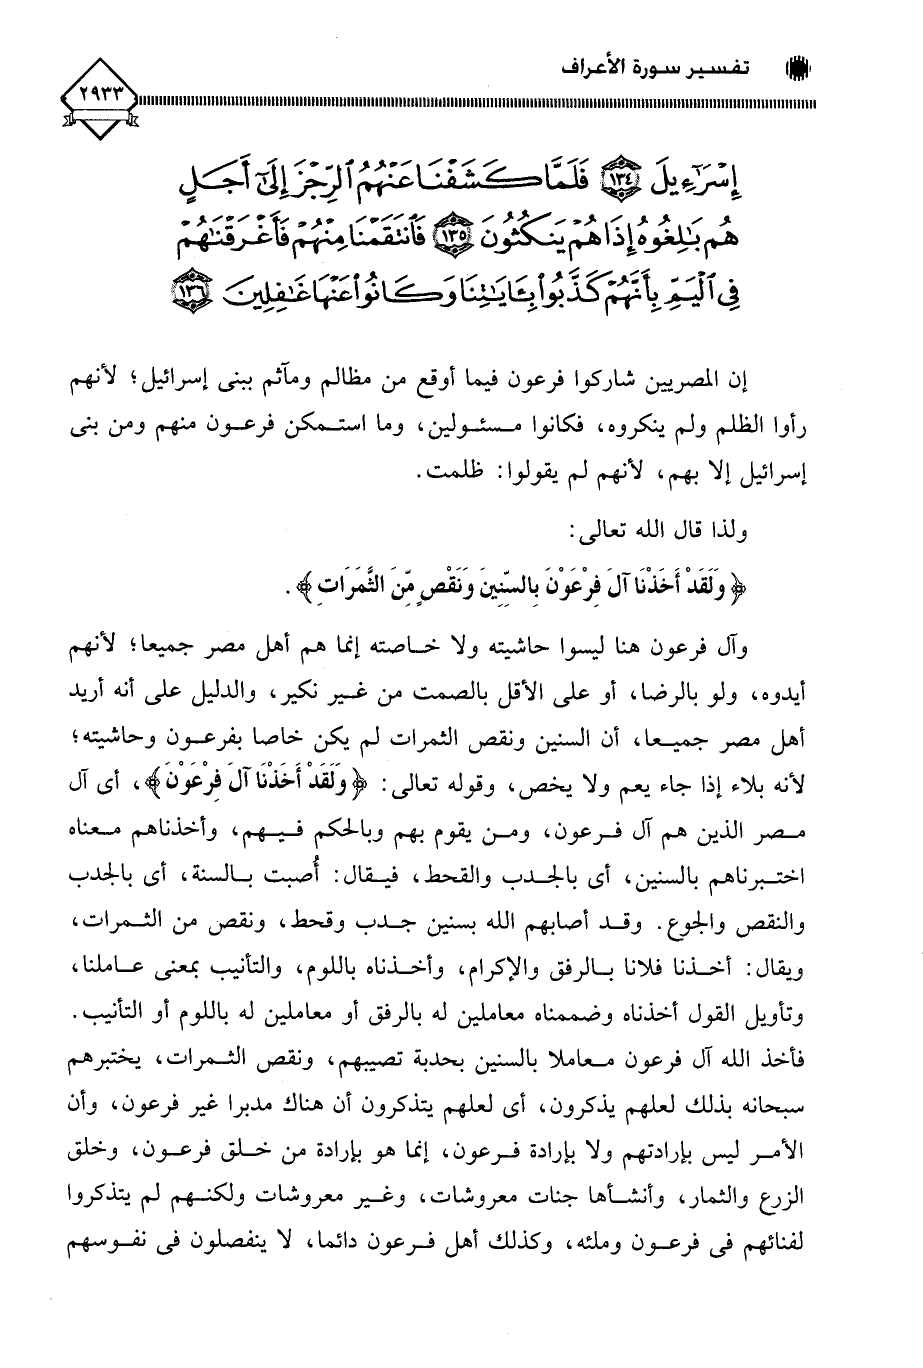 تفسير سورة الأعراف
٢٩٣٣
إِسْرَٰٓءِيلَ ١٣٤ فَلَمَّا كَشَفْنَا عَنْهُمُ ٱلرِّجْزَ إِلَىٰٓ أَجَلٍ
هُم بَٰلِغُوهُ إِذَا هُمْ يَنكُثُونَ ١٣٥ فَٱنتَقَمْنَا مِنْهُمْ فَأَغْرَقْنَٰهُمْ
فِى ٱلْيَمِّ بِأَنَّهُمْ كَذَّبُوا۟ بِـَٔايَٰتِنَا وَكَانُوا۟ عَنْهَا غَٰفِلِينَ ١٣٦
إن المصريين شاركوا فرعون فيما أوقع من مظالم ومآثم ببنى إسرائيل؛ لأنهم
رأوا الظلم ولم ينكروه، فكانوا مسئولين، وما استمكن فرعون منهم ومن بنى
إسرائيل إلا بهم، لأنهم لم يقولوا: ظلمت.
ولذا قال الله تعالى:
﴿وَلَقَدْ أَخَذْنَا آلَ فِرْعَوْنَ بِالسِّنِينَ وَنَقْصٍ مِّنَ الثَّمَرَاتِ﴾.
وآل فرعون هنا ليسوا حاشيته ولا خاصته إنما هم أهل مصر جميعا؛ لأنهم
أيدوه، ولو بالرضا، أو على الأقل بالصمت من غير نكير، والدليل على أنه أريد
أهل مصر جميعا، أن السنين ونقص الثمرات لم يكن خاصا بفرعون وحاشيته؛
لأنه بلاء إذا جاء يعم ولا يخص، وقوله تعالى: ﴿وَلَقَدْ أَخَذْنَا آلَ فِرْعَوْنَ﴾، أى آل
مصر الذين هم آل فرعون، ومن يقوم بهم وبالحكم فيهم، وأخذناهم معناه
اختبرناهم بالسنين، أى بالجدب والقحط، فيقال: أُصبت بالسنة، أى بالجدب
والنقص والجوع. وقد أصابهم الله بسنين جدب وقحط، ونقص من الثمرات،
ويقال: أخذنا فلانا بالرفق والإكرام، وأخذناه باللوم، والتأنيب بمعنى عاملنا،
وتأويل القول أخذناه وضممناه معاملين له بالرفق أو معاملين له باللوم أو التأنيب.
فأخذ الله آل فرعون معاملا بالسنين بحدبة تصيبهم، ونقص الثمرات، يختبرهم
سبحانه بذلك لعلهم يذكرون، أى لعلهم يتذكرون أن هناك مدبرا غير فرعون، وأن
الأمر ليس بإرادتهم ولا بإرادة فرعون، إنما هو بإرادة من خلق فرعون، وخلق
الزرع والثمار، وأنشأها جنات معروشات، وغير معروشات ولكنهم لم يتذكروا
لفنائهم فى فرعون وملئه، وكذلك أهل فرعون دائما، لا ينفصلون فى نفوسهم